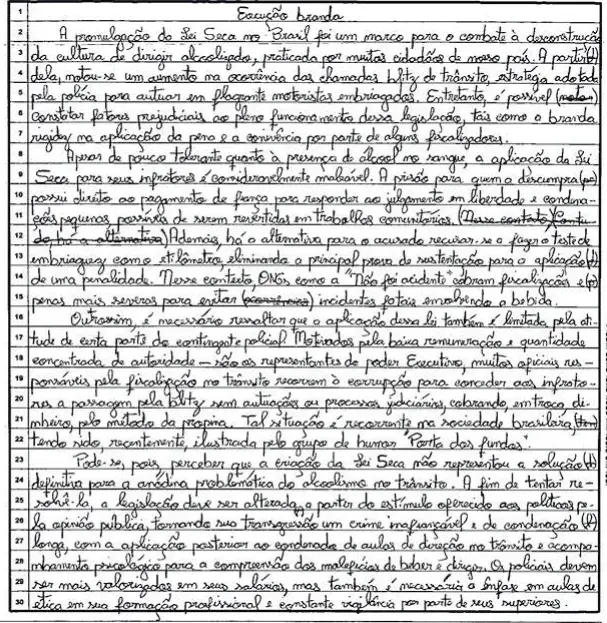 1 Execução branda
2 A promulgação da Lei Seca no Brasil foi um marco para o combate à desconstrução
3 da cultura de dirigir alcoolizado, praticada por muitos cidadãos de nosso país. A partir
4 dela, notou-se um aumento na ocorrência das chamadas blitz de trânsito, estratégia adotada
5 pela polícia para autuar em flagrante motoristas embriagados. Entretanto, é possível (notar)
6 constatar fatores prejudiciais ao pleno funcionamento dessa legislação, tais como a branda
7 rigidez na aplicação da pena e a conivência por parte de alguns fiscalizadores.
8 Apesar de pouco tolerante quanto à presença de álcool no sangue, a aplicação da Lei
9 Seca para seus infratores é consideravelmente maleável. A prisão para quem a descumpra (po)
10 possui direito ao pagamento de fiança para responder ao julgamento em liberdade e condena-
11 ções pequenas possíveis de serem revertidas em trabalhos comunitários. (Nesse contexto) (Contu-
12 do há a alternativa) Ademais, há a alternativa para o acusado recusar-se a fazer o teste de
13 embriaguez como etilômetro, eliminando a principal prova de sustentação para a aplicação
14 de uma penalidade. Nesse contexto, ONGs, como a "Não foi acidente" cobram fiscalizações e (p)
15 penas mais severas para evitar incidentes fatais envolvendo a bebida.
16 Outrossim, é necessário ressaltar que a aplicação dessa lei também é limitada pela ati-
17 tude de certa parte do contingente policial. Motivados pela baixa remuneração e quantidade
18 concentrada de autoridade – são os representantes do poder Executivo, muitos oficiais res-
19 ponsáveis pela fiscalização no trânsito recorrem à corrupção para conceder aos infrato-
20 res a passagem pela blitz sem autuações ou processos judiciários, cobrando, em troca, di-
21 nheiro, pelo método da propina. Tal situação é recorrente na sociedade brasileira, (ten)
22 tendo sido, recentemente, ilustrada pelo grupo de humor "Porta dos fundos".
23 Pode-se, pois, perceber que a criação da Lei Seca não representou a solução
24 definitiva para a anódina problemática do alcoolismo no trânsito. A fim de tentar re-
25 solvê-la, a legislação deve ser alterada, a partir do estímulo oferecido aos políticos pe-
26 la opinião pública, tornando sua transgressão um crime inafiançável e de condenação (l)
27 longa, com a aplicação posterior ao condenado de aulas de direção no trânsito e acompa-
28 nhamento psicológico para a compreensão dos malefícios de beber e dirigir. Os policiais devem
29 ser mais valorizados em seus salários, mas também é necessária a ênfase em aulas de
30 ética em sua formação profissional e constante vigilância por parte de seus superiores.